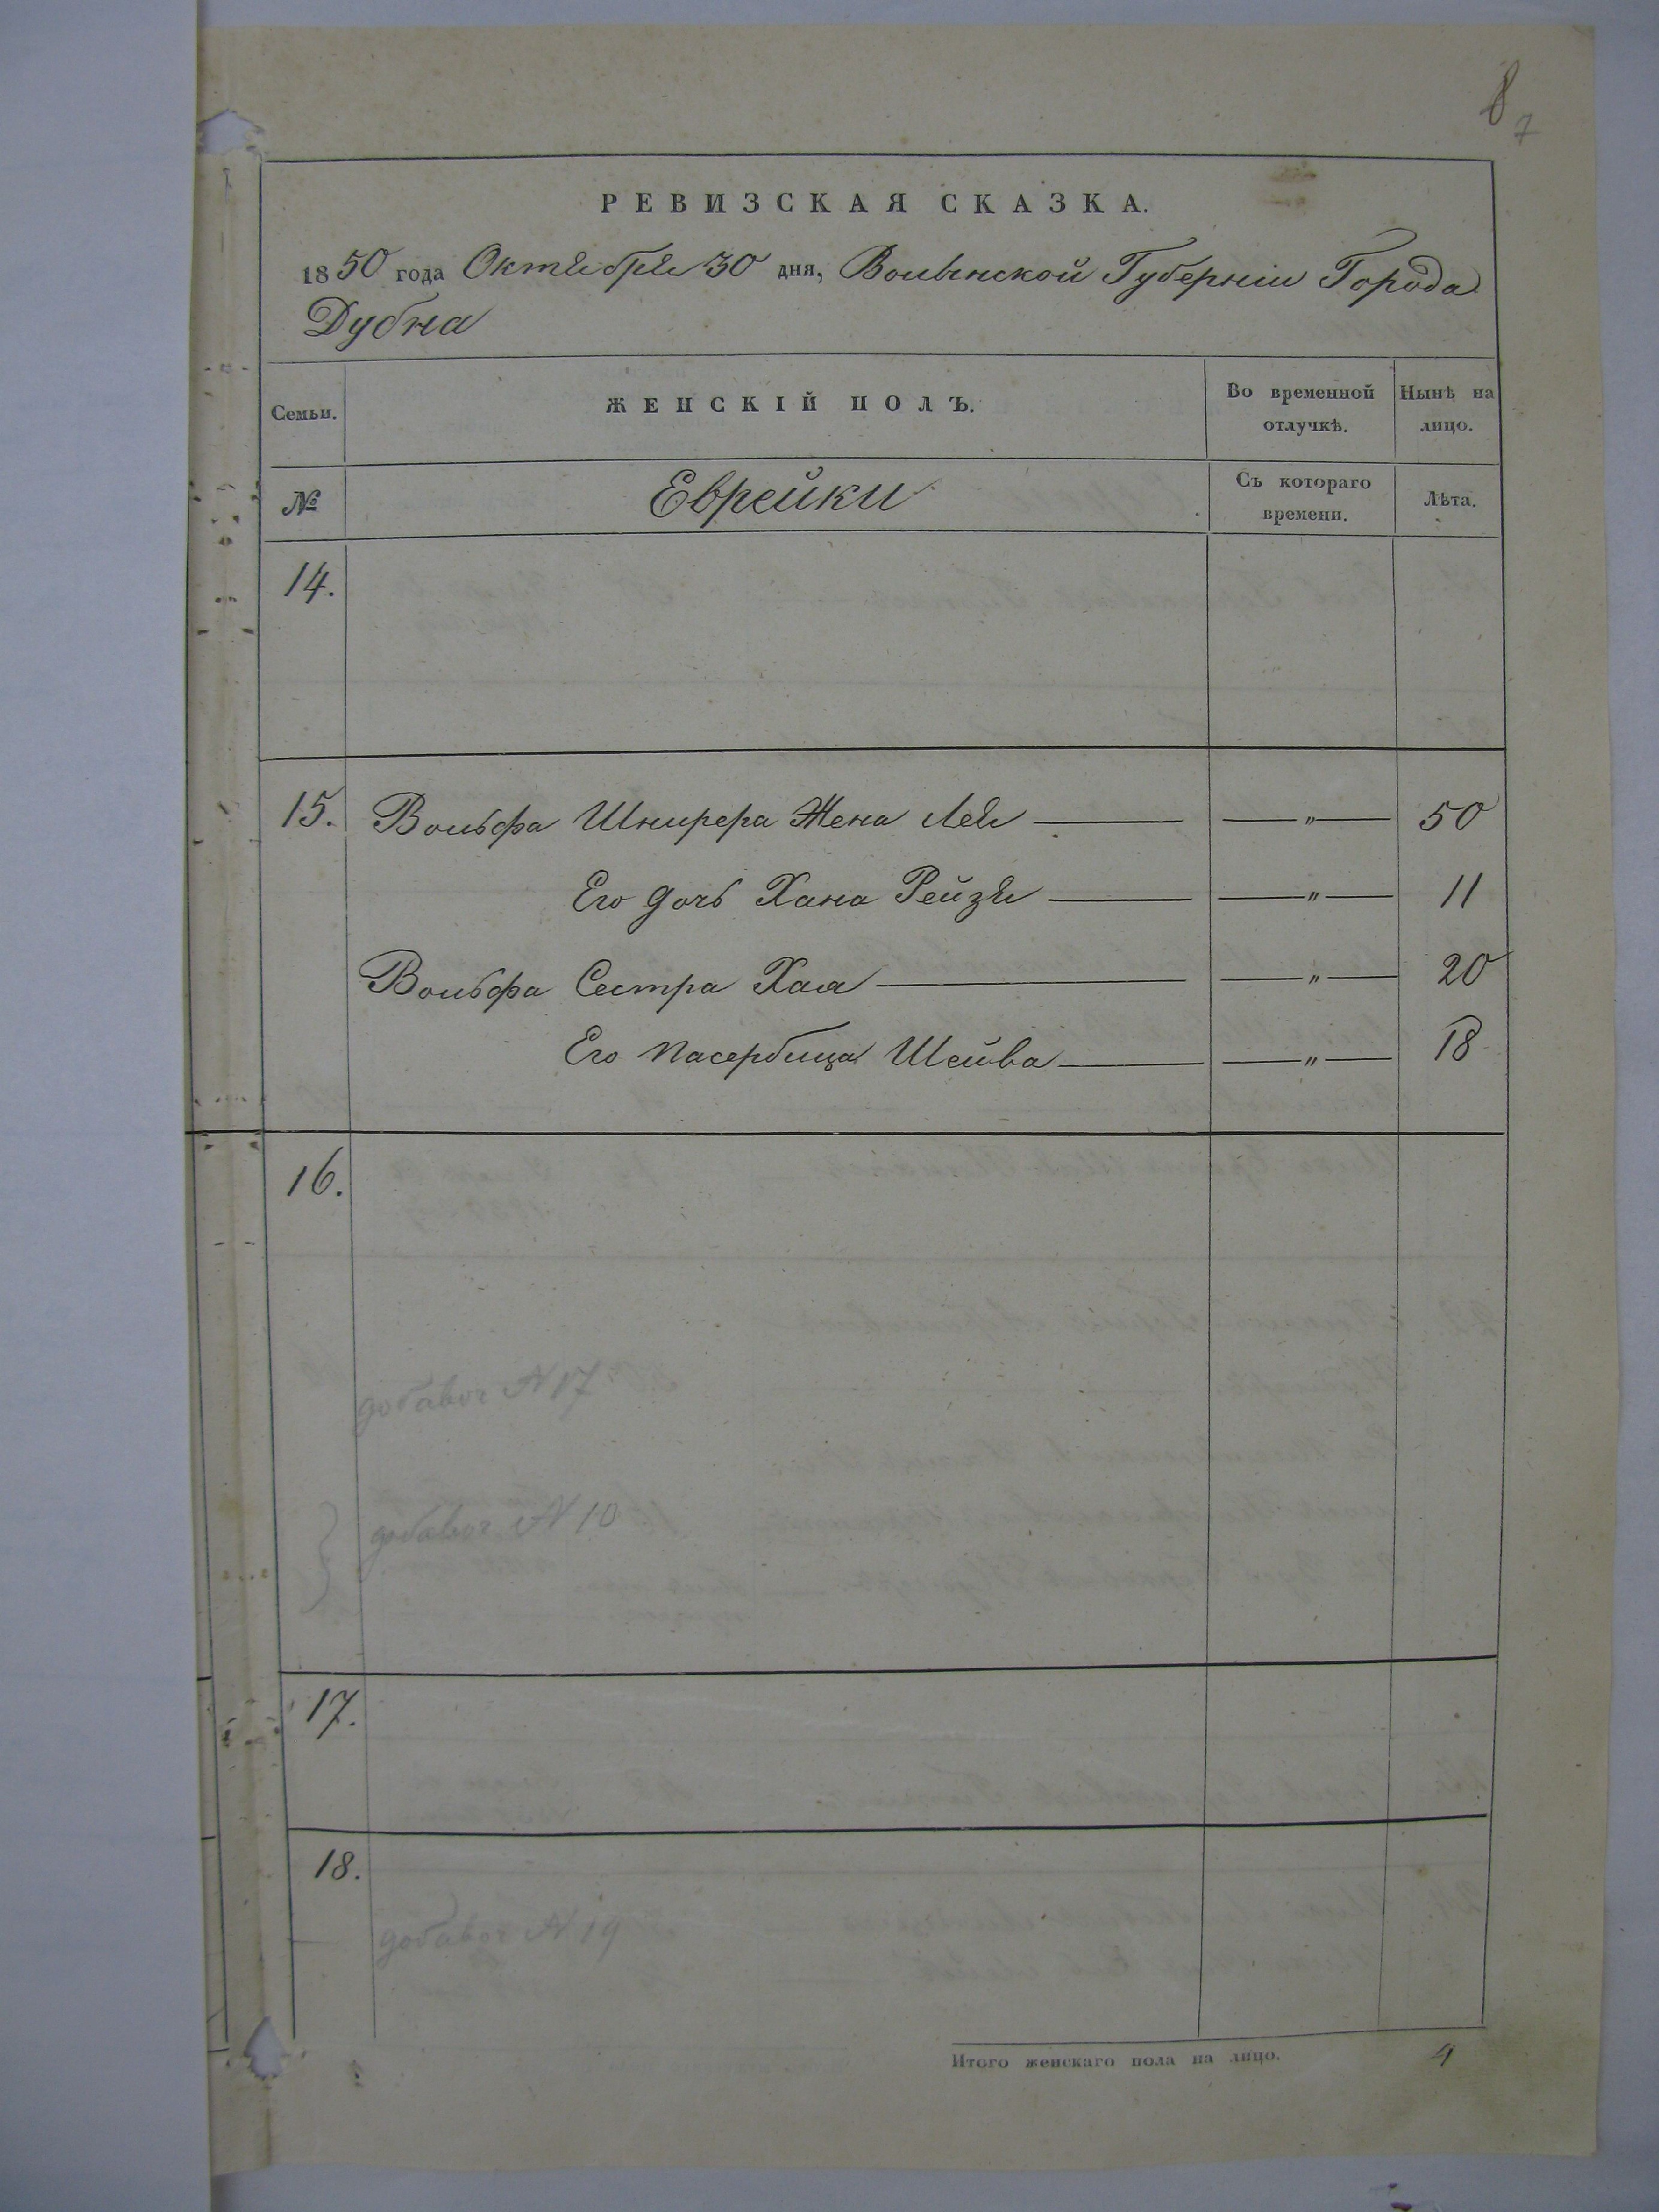 8
7
РЕВИЗСКАЯ СКАЗКА.
1850 года Октября 30 дня, Волынской Губернии Города
Дубна
Семьи.
ЖЕНСКІЙ ПОЛЪ.
Во временной
отлучкѣ.
Нынѣ на
лицо.
№
Еврейки
Съ котораго
времени.
Лѣта.
14.
15. Вольфа Шнирера Жена Лея — " — 50
Его дочь Хана Рейзя — " — 11
Вольфа Сестра Хая — " — 20
Его пасербица Шейва — " — 18
16.
добавоч N 17
добавоч N 10
17.
18.
добавоч N 19
Итого женскаго пола на лицо. 4